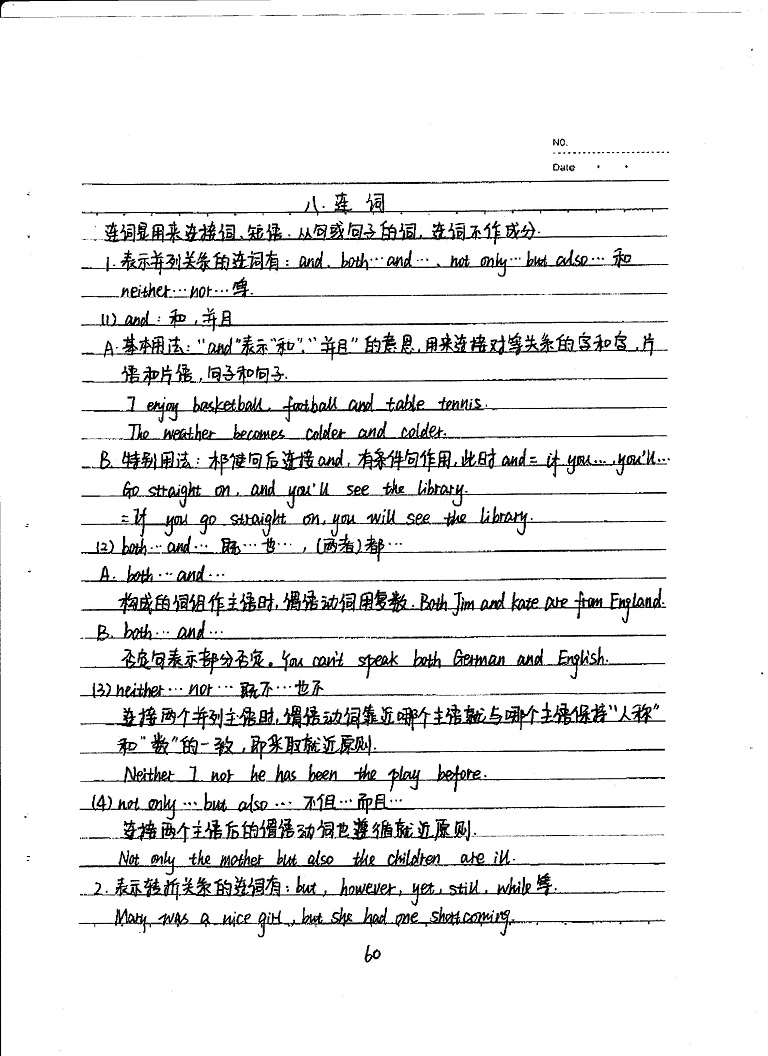 NO.
Date
八. 连 词
连词是用来连接词、短语、从句或句子的词，连词不作成分.
1. 表示并列关系的连词有：and、both…and…、not only…but also…和
neither…nor…等.
(1) and：和，并且
A. 基本用法："and"表示"和"、"并且"的意思，用来连接对等关系的字和字，片
语和片语，句子和句子.
I enjoy basketball, football and table tennis.
The weather becomes colder and colder.
B. 特别用法：祈使句后连接and，有条件句作用，此时and = if you…, you'll…
Go straight on, and you'll see the library.
= If you go straight on, you will see the library.
(2) both…and… 既…也…，(两者)都…
A. both…and…
构成的词组作主语时，谓语动词用复数. Both Jim and Kate are from England.
B. both…and…
否定句表示部分否定。You can't speak both German and English.
(3) neither…nor… 既不…也不
连接两个并列主语时，谓语动词靠近哪个主语就与哪个主语保持"人称"
和"数"的一致，即采取就近原则.
Neither I nor he has been the play before.
(4) not only…but also… 不但…而且…
连接两个主语后的谓语动词也遵循就近原则.
Not only the mother but also the children are ill.
2. 表示转折关系的连词有：but, however, yet, still, while等.
Mary was a nice girl, but she had one shortcoming.
60